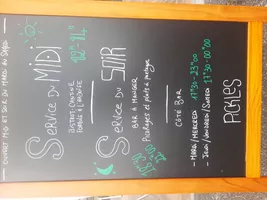 OUVERT MIDI ET SOIR DU MARDI AU SAMEDI
SERVICE DU MIDI
12H-14H
BISTROT CANAILLE
SERVICE DU SOIR
BAR À MANGER
Picorages et plats à partager
CÔTÉ BAR
- MARDI/MERCREDI 17H30-23H00
- JEUDI/VENDREDI/SAMEDI 17H30-00H00
PICKLES